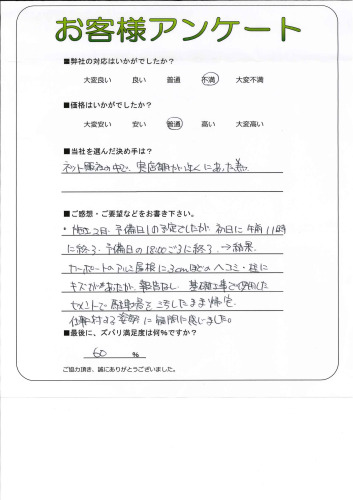 お客様アンケート
■弊社の対応はいかがでしたか?
大変良い 良い 普通 不満 大変不満
■価格はいかがでしたか?
大変安い 安い 普通 高い 大変高い
■当社を選んだ決め手は?
ネット販売の中で、実店舗が近くにあった為。
■ご感想・ご要望などをお書き下さい。
・施工2日、予備日1の予定でしたが、初日に午前11時
に終了、予備日の18:00ごろに終了。→結果、
カーポートのアルミ屋根に3cmほどのヘコミ・柱に
キズがあったが、報告なし。基礎工事で使用した
セメントで駐車場を汚したまま帰宅。
仕事に対する姿勢に疑問に感じました。
■最後に、ズバリ満足度は何%ですか?
60 %
ご協力頂き、誠にありがとうございました。